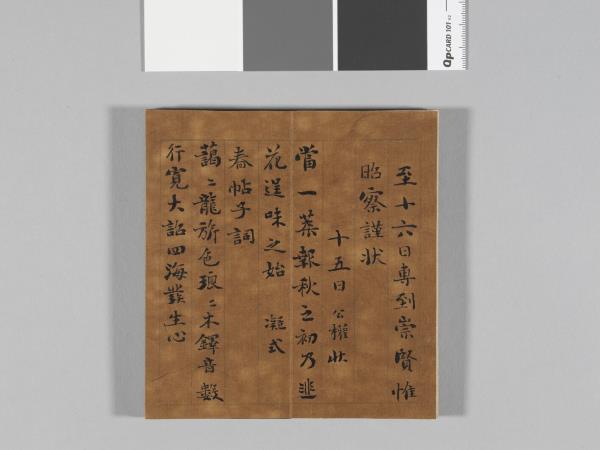 至十六日専到崇賢惟
昭察謹状
十五日 公權状
當一葉報秋之初乃韭
花逞味之始 凝式
春帖子詞
藹〻龍旂色琅〻木鐸音數
行寛大詔四海發生心
QPCARD 101 v2